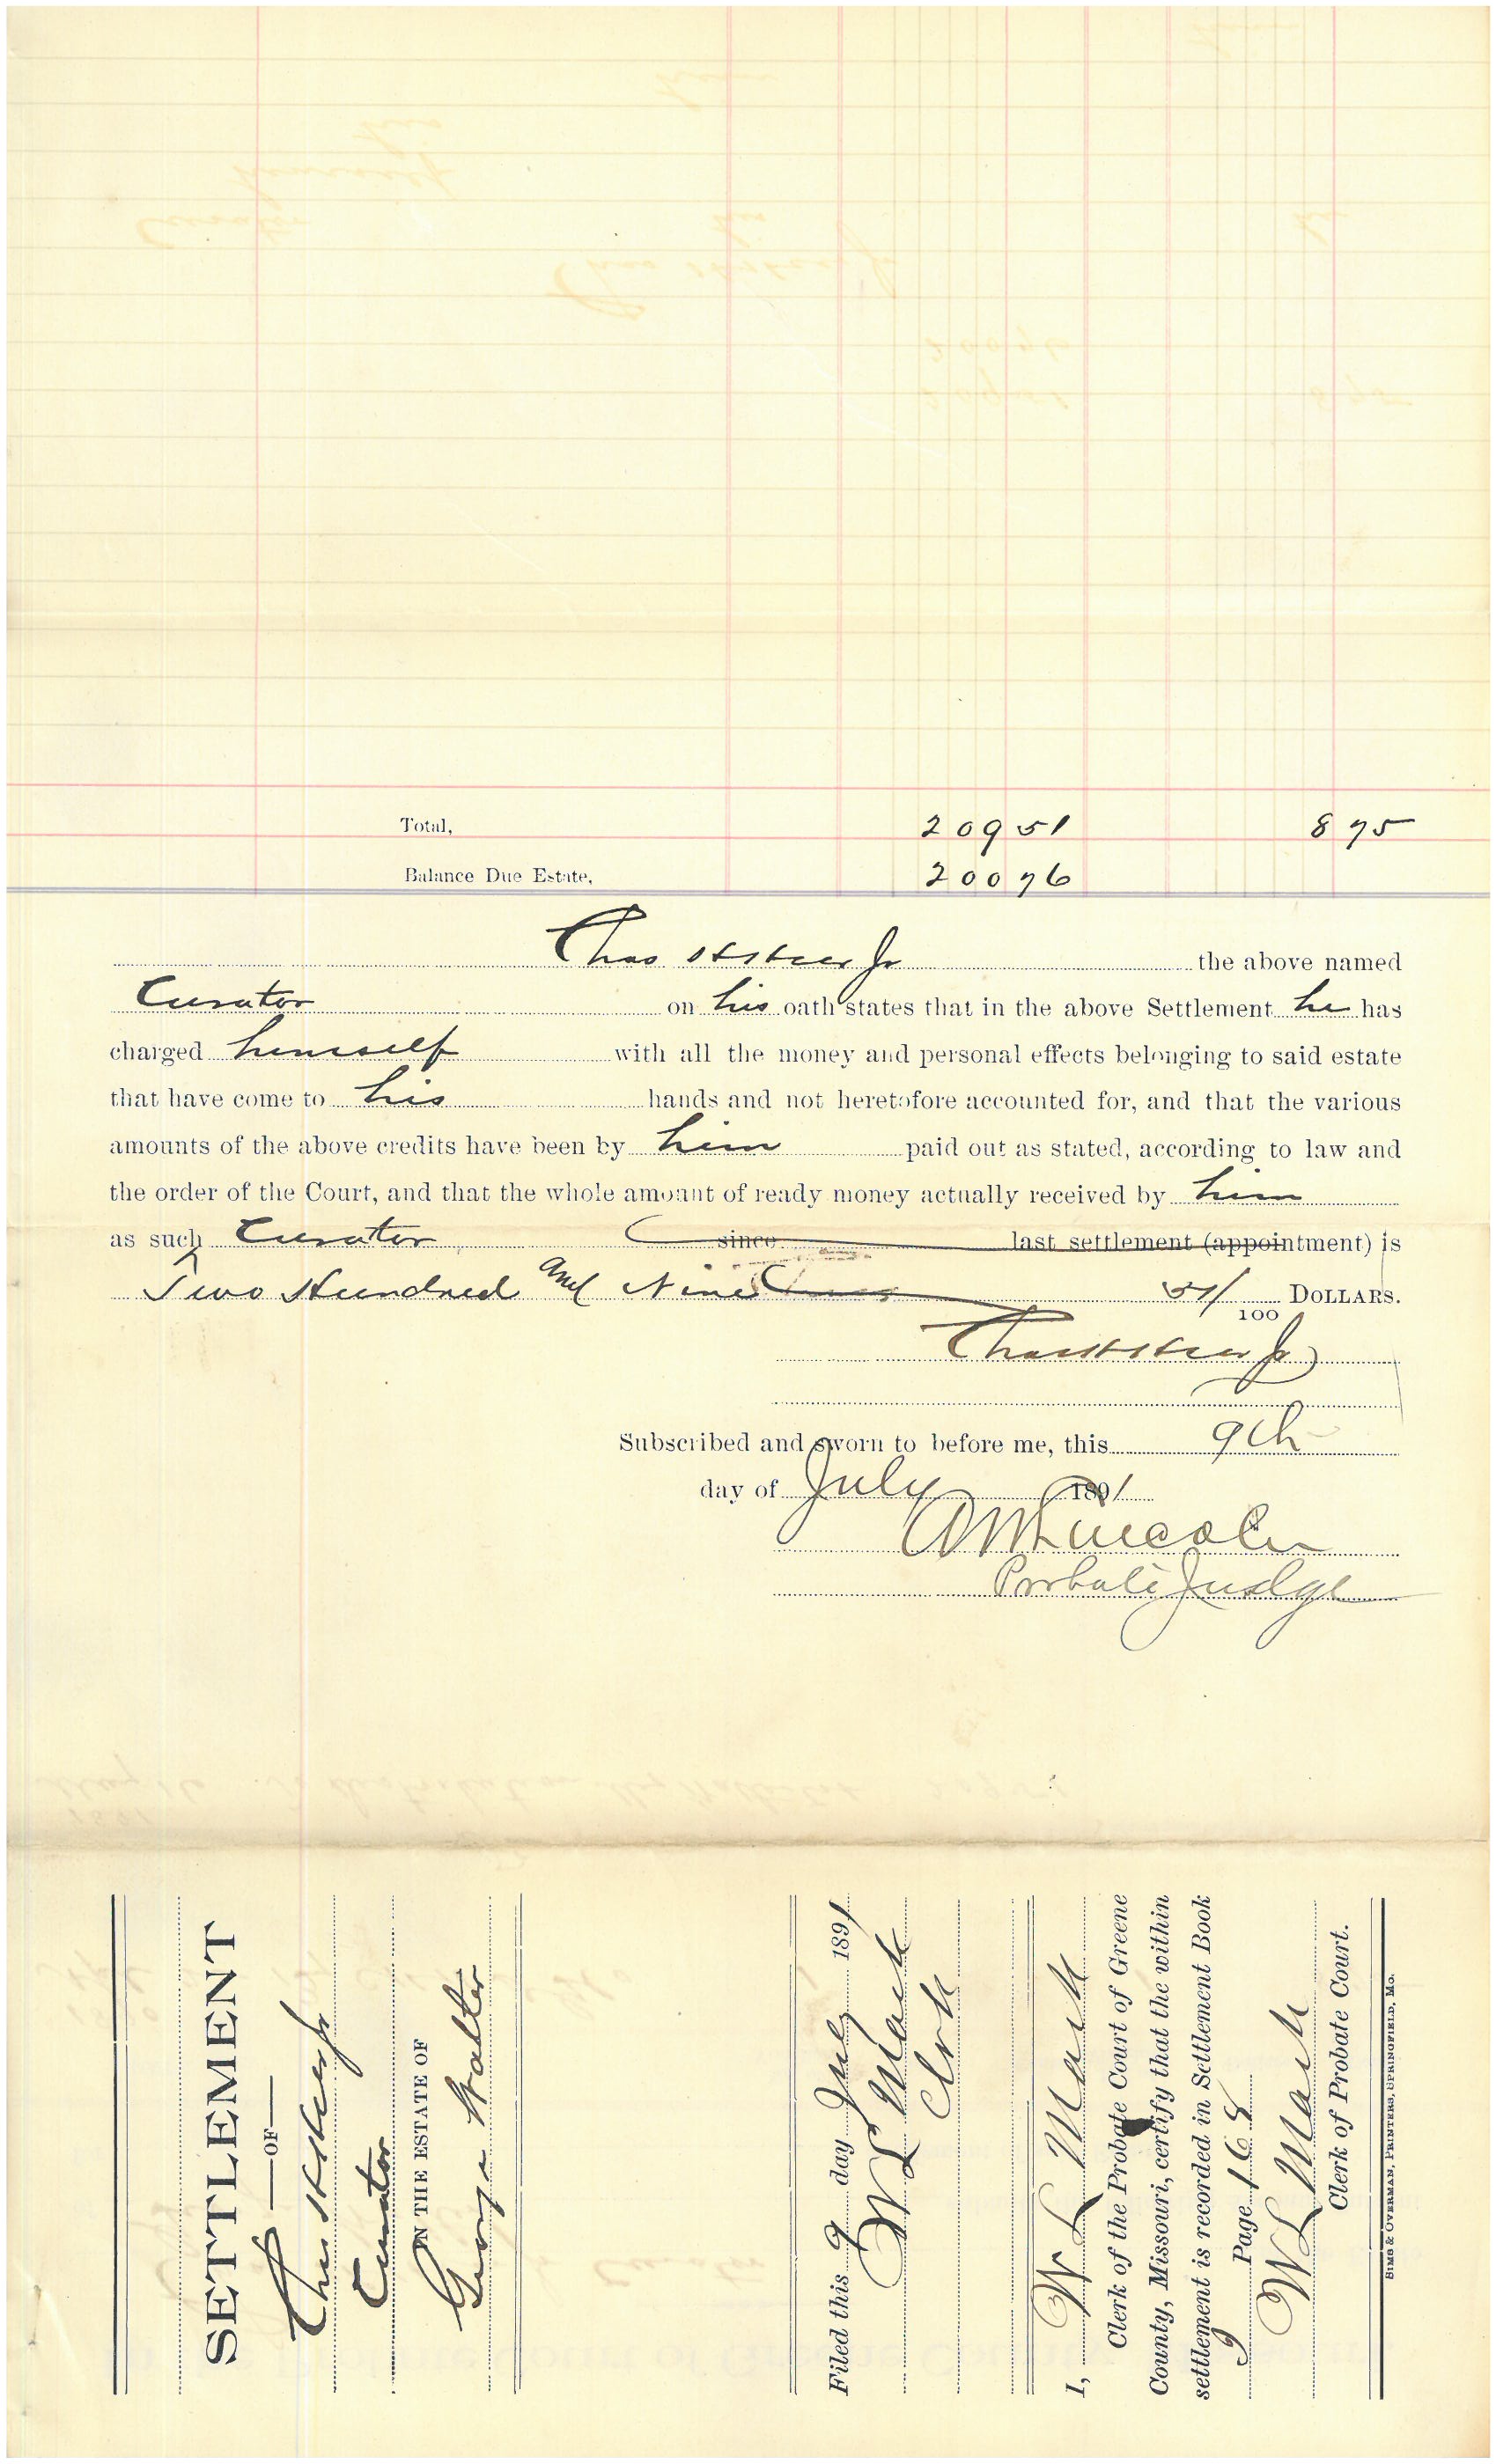 Total, 209 51 8 75
Balance Due Estate, 200 76
Chas Jr the above named
Curator on his oath states that in the above Settlement he has
charged himself with all the money and personal effects belonging to said estate
that have come to his hands and not heretofore accounted for, and that the various
amounts of the above credits have been by him paid out as stated, according to law and
the order of the Court, and that the whole amount of ready money actually received by him
as such Curator since last settlement (appointment) is
Two Hundred and Nine 51/100 DOLLARS.
Chas Jr
Subscribed and sworn to before me, this 9th
day of July 1891
Lincoln
Probate Judge
SETTLEMENT
OF
Chas Jr
Curator
IN THE ESTATE OF
George Walter
Filed this 9 day July 1891
W L Mack
Clerk
I, W L Mack
Clerk of the Probate Court of Greene
County, Missouri, certify that the within
settlement is recorded in Settlement Book
9 Page 168
W L Mack
Clerk of Probate Court.
SIMS & OVERMAN, PRINTERS, SPRINGFIELD, MO.